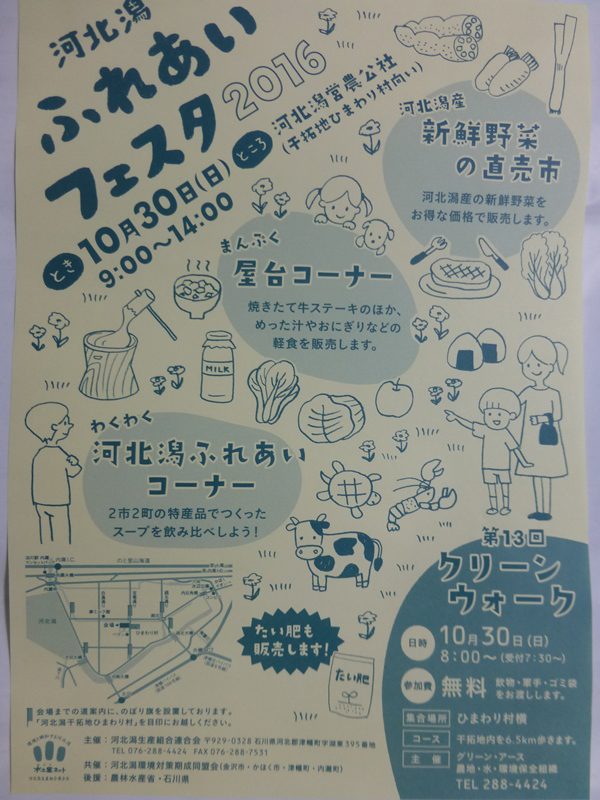 河北潟
ふれあい
フェスタ
2016
とき
10月30日(日)
9:00～14:00
ところ
河北潟営農公社
(干拓地ひまわり村向い)
河北潟産
新鮮野菜
の直売市
河北潟産の新鮮野菜を
お得な価格で販売します。
まんぷく
屋台コーナー
焼きたて牛ステーキのほか、
めった汁やおにぎりなどの
軽食を販売します。
MILK
わくわく
河北潟ふれあい
コーナー
2市2町の特産品でつくった
スープを飲み比べしよう!
のと里山海道
河北潟
会場
ひまわり村
たい肥も
販売します!
たい肥
会場までの道案内に、のぼり旗を設置しております。
「河北潟干拓地ひまわり村」を目印にお越しください。
主催：河北潟生産組合連合会 〒929-0328 石川県河北郡津幡町字湖東395番地
TEL 076-288-4424 FAX 076-288-7531
共催：河北潟環境対策期成同盟会(金沢市・かほく市・津幡町・内灘町)
後援：農林水産省・石川県
第13回
クリーン
ウォーク
日時
10月30日(日)
8:00～(受付7:30～)
参加費
無料
飲物・軍手・ゴミ袋
をお渡しします。
集合場所 ひまわり村横
コース 干拓地内を6.5km歩きます。
主催 グリーン・アース
農地・水・環境保全組織
TEL 288-4424